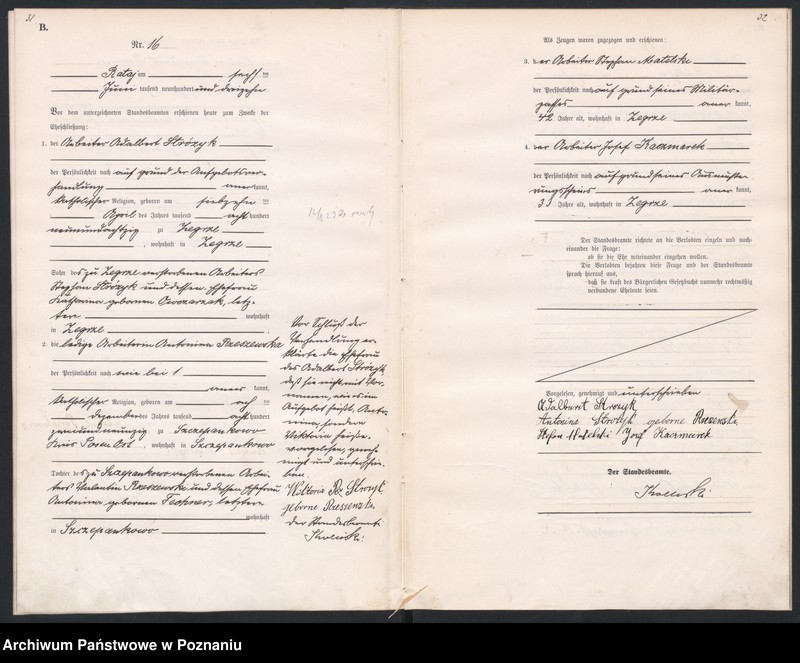 31
B.
Nr. 16
Rataj am sechs ten
Juni tausend neunhundert und dreizehn
Vor dem unterzeichneten Standesbeamten erschienen heute zum Zwecke der
Eheschließung:
1. der Arbeiter Adalbert Strózyk
der Persönlichkeit nach auf grund der Aufgebotsver-
handlung anerkannt,
katholischer Religion, geboren am siebzehn ten
April des Jahres tausend acht hundert
neunundachtzig zu Zegrze
, wohnhaft in Zegrze
Sohn des zu Zegrze verstorbenen Arbeiters
Stephan Strózyk und dessen Ehefrau
Katharina geborenen Owczarzak, letz-
tere wohnhaft
in Zegrze ;
2. die ledige Arbeiterin Antonina Rzeszewska
der Persönlichkeit nach wie bei 1
anerkannt,
katholischer Religion, geboren am
dezember des Jahres tausend acht hundert
zweiundneunzig zu Szczepankowo
Kreis Posen Ost, wohnhaft in Szczepankowo
Tochter des zu Szczepankowo verstorbenen Arbei-
ters Valentin Rzeszewski und dessen Ehefrau
Antonina geborenen Techner, letztere
wohnhaft
in Szczepankowo
Vor Schluß der
Verhandlung er-
klärte die Ehefrau
des Adalbert Strózyk
daß sie nicht mit Vor-
namen, wie es im
Aufgebot heißt, Anto-
nina, sondern
Viktoria heiße.
Vorgelesen, geneh-
migt und unterschrie-
ben
Wiktoria Strozyk
geborne
der Standesbeamte
32
Als Zeugen waren zugezogen und erschienen:
3. der Arbeiter Stephan Matelski
der Persönlichkeit nach auf grund seines Militär-
passes anerkannt,
42 Jahre alt, wohnhaft in Zegrze
4. der Arbeiter Josef Kaczmarek
der Persönlichkeit nach auf grund seines Ausmuste-
rungsscheins anerkannt,
33 Jahre alt, wohnhaft in Zegrze
Der Standesbeamte richtete an die Verlobten einzeln und nach-
einander die Frage:
ob sie die Ehe miteinander eingehen wollen.
Die Verlobten bejahten diese Frage und der Standesbeamte
sprach hierauf aus,
daß sie kraft des Bürgerlichen Gesetzbuchs nunmehr rechtmäßig
verbundene Eheleute seien.
Vorgelesen, genehmigt und unterschrieben
Adalbert Strozyk
Antonina Strozyk geborne
Stefan Matelski Jozef Kaczmarek
Der Standesbeamte.
Archiwum Państwowe w Poznaniu